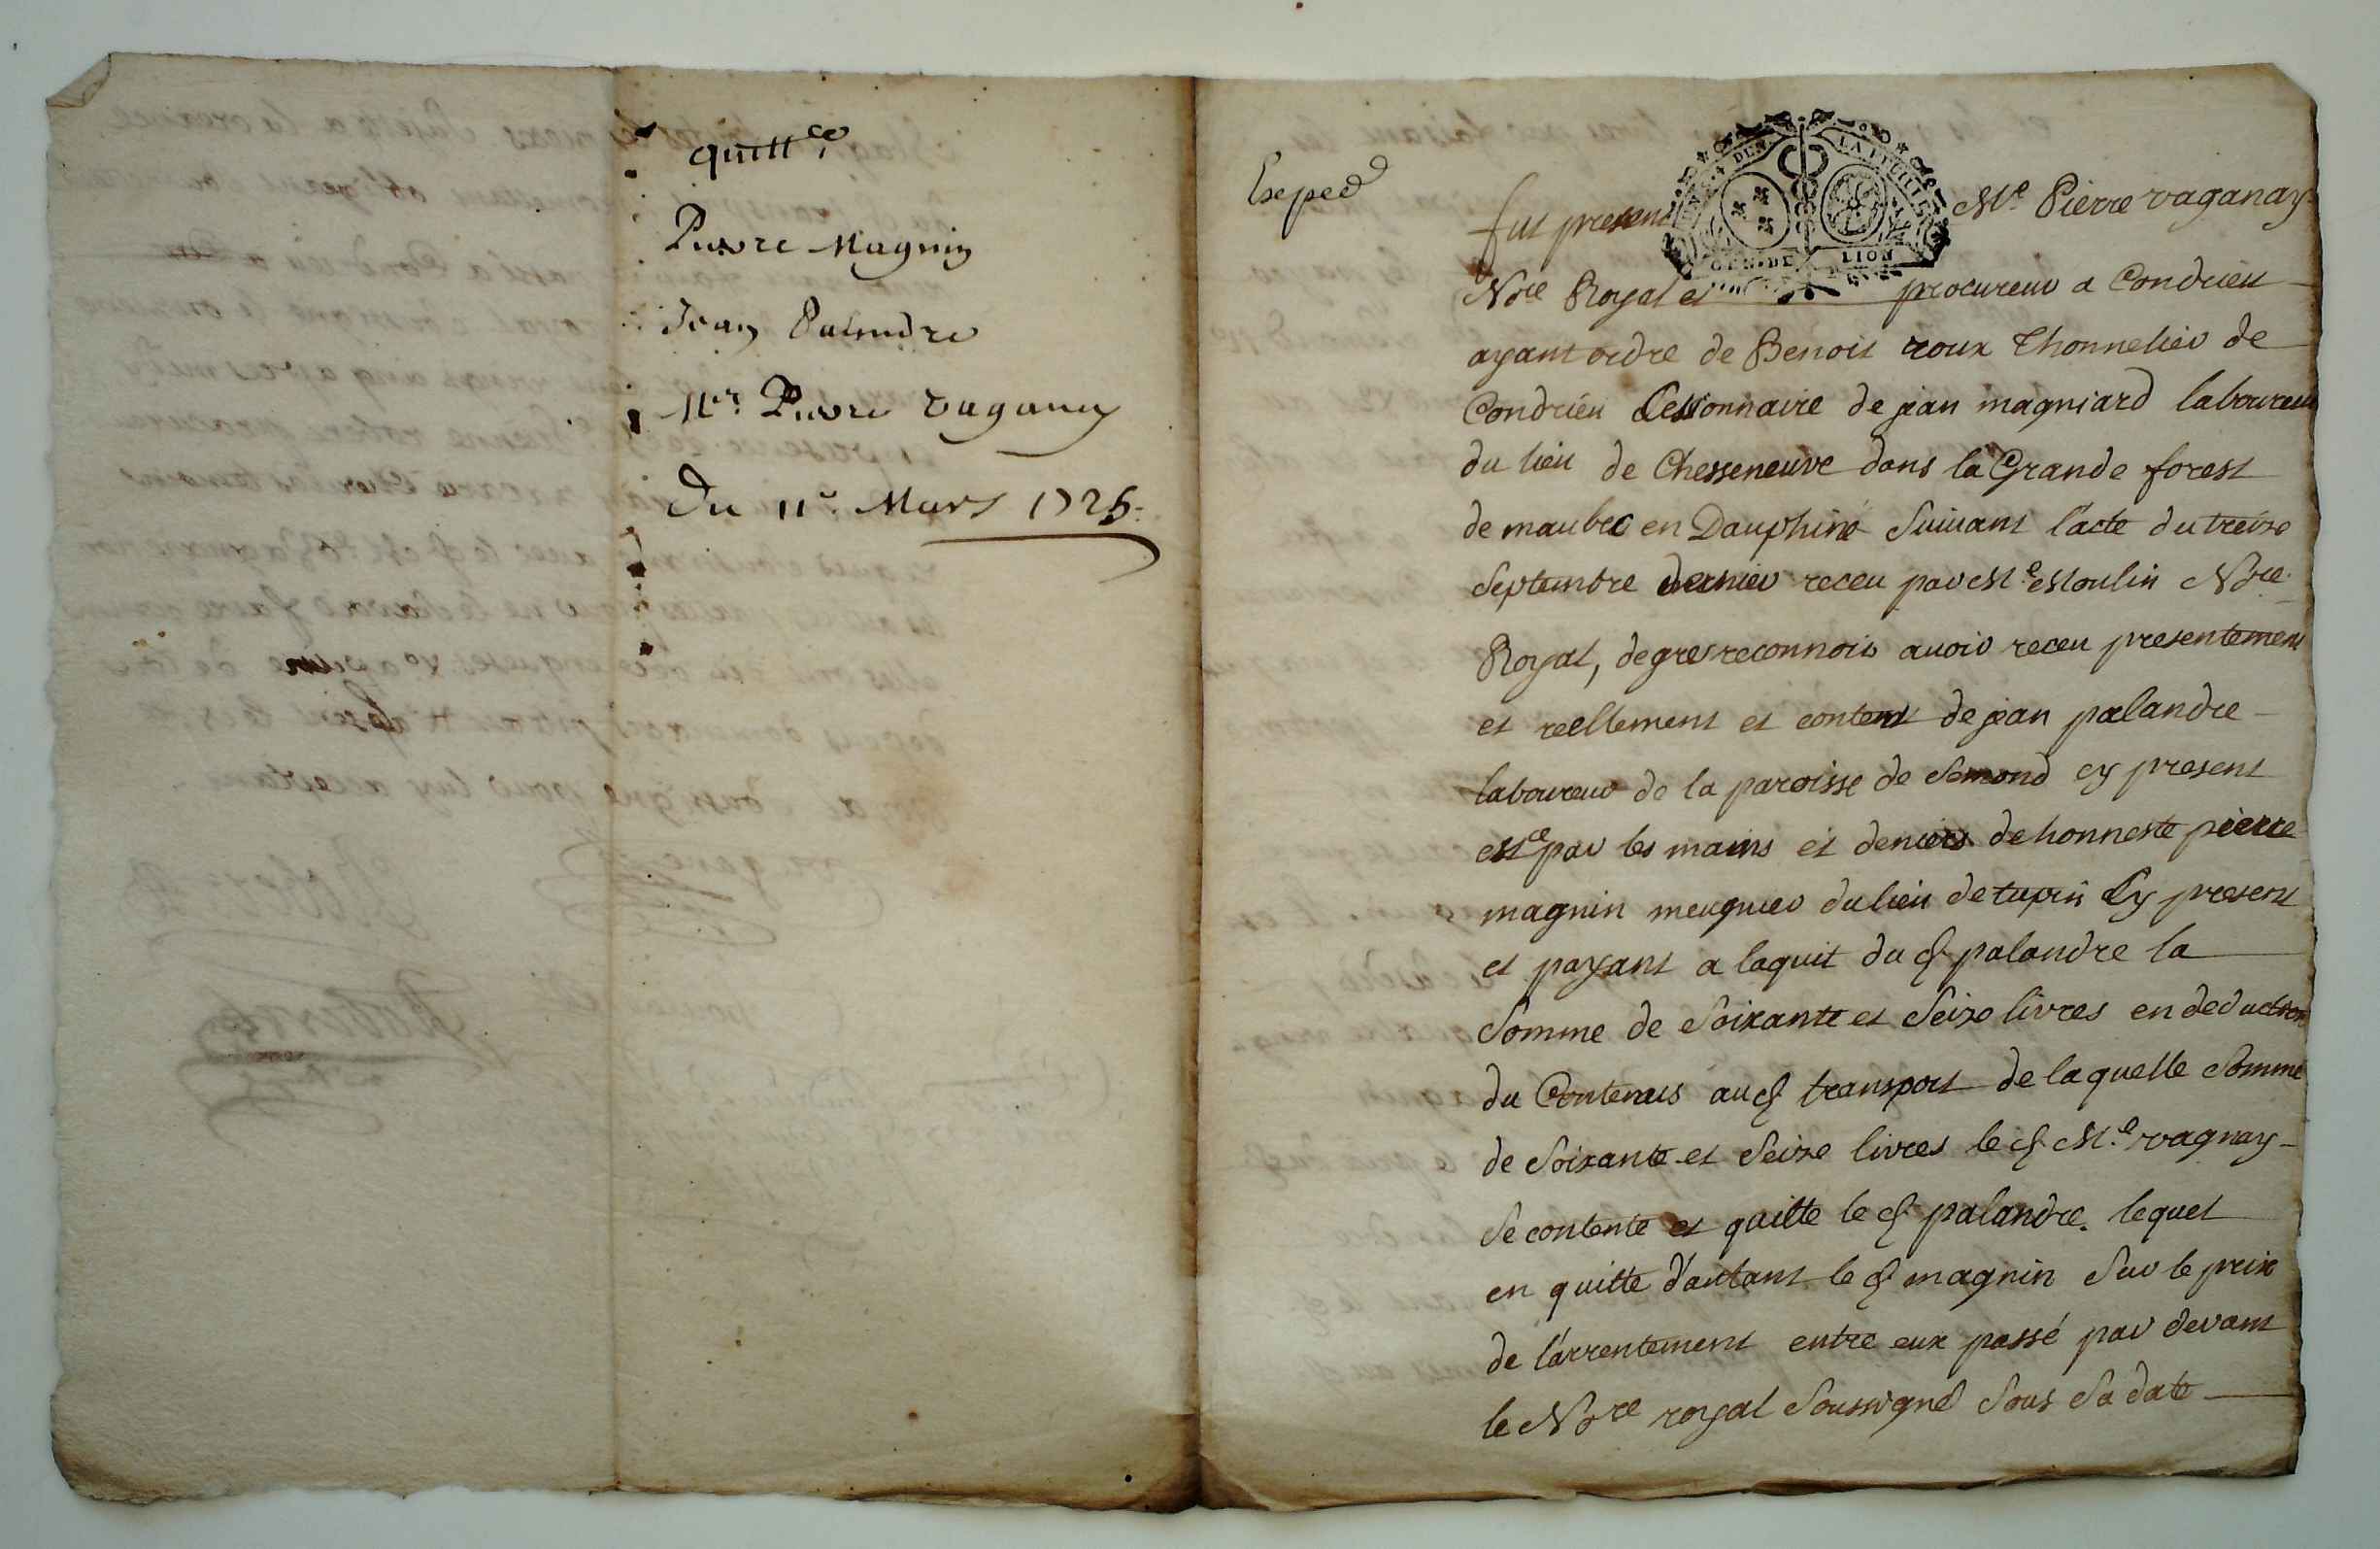 quitt.ce
Pierre Magnin
Jean Palandre
Mr. Pierre vaganay
Du 11e. Mars 1725.
Exped
GEN. DE LION
fut present Me. Pierre vaganay
Nore Royal et procureur a Condrieu
ayant ordre de Benoit roux Thonnelier de
Condrieu Cessionnaire de jean magniard laboureur
du lieu de Chesseneuve dans la Grande forest
de maubec en Dauphiné Suivant l'acte du treize
Septembre dernier receu par Me. Moulin Nore.
Royal, de gres reconnois avoir receu presentement
et reellement et content de jean palandre
laboureur de la paroisse de Semond cy present
et ce par les mains et deniers de honneste pierre
magnin meugnier du lieu de tupin Cy present
et payant a laquit du d. palandre la
Somme de Soixante et Seize livres en deduction
du Contenus aud. transport de laquelle Somme
de Soixante et Seize livres le d. Me. vagnay
Se contente et quitte le d. palandre. lequel
en quitte d'autant le d. magnin Sur le prix
de l'arrentement entre eux passé par devant
le Nore royal Soussigné Sous Sa date